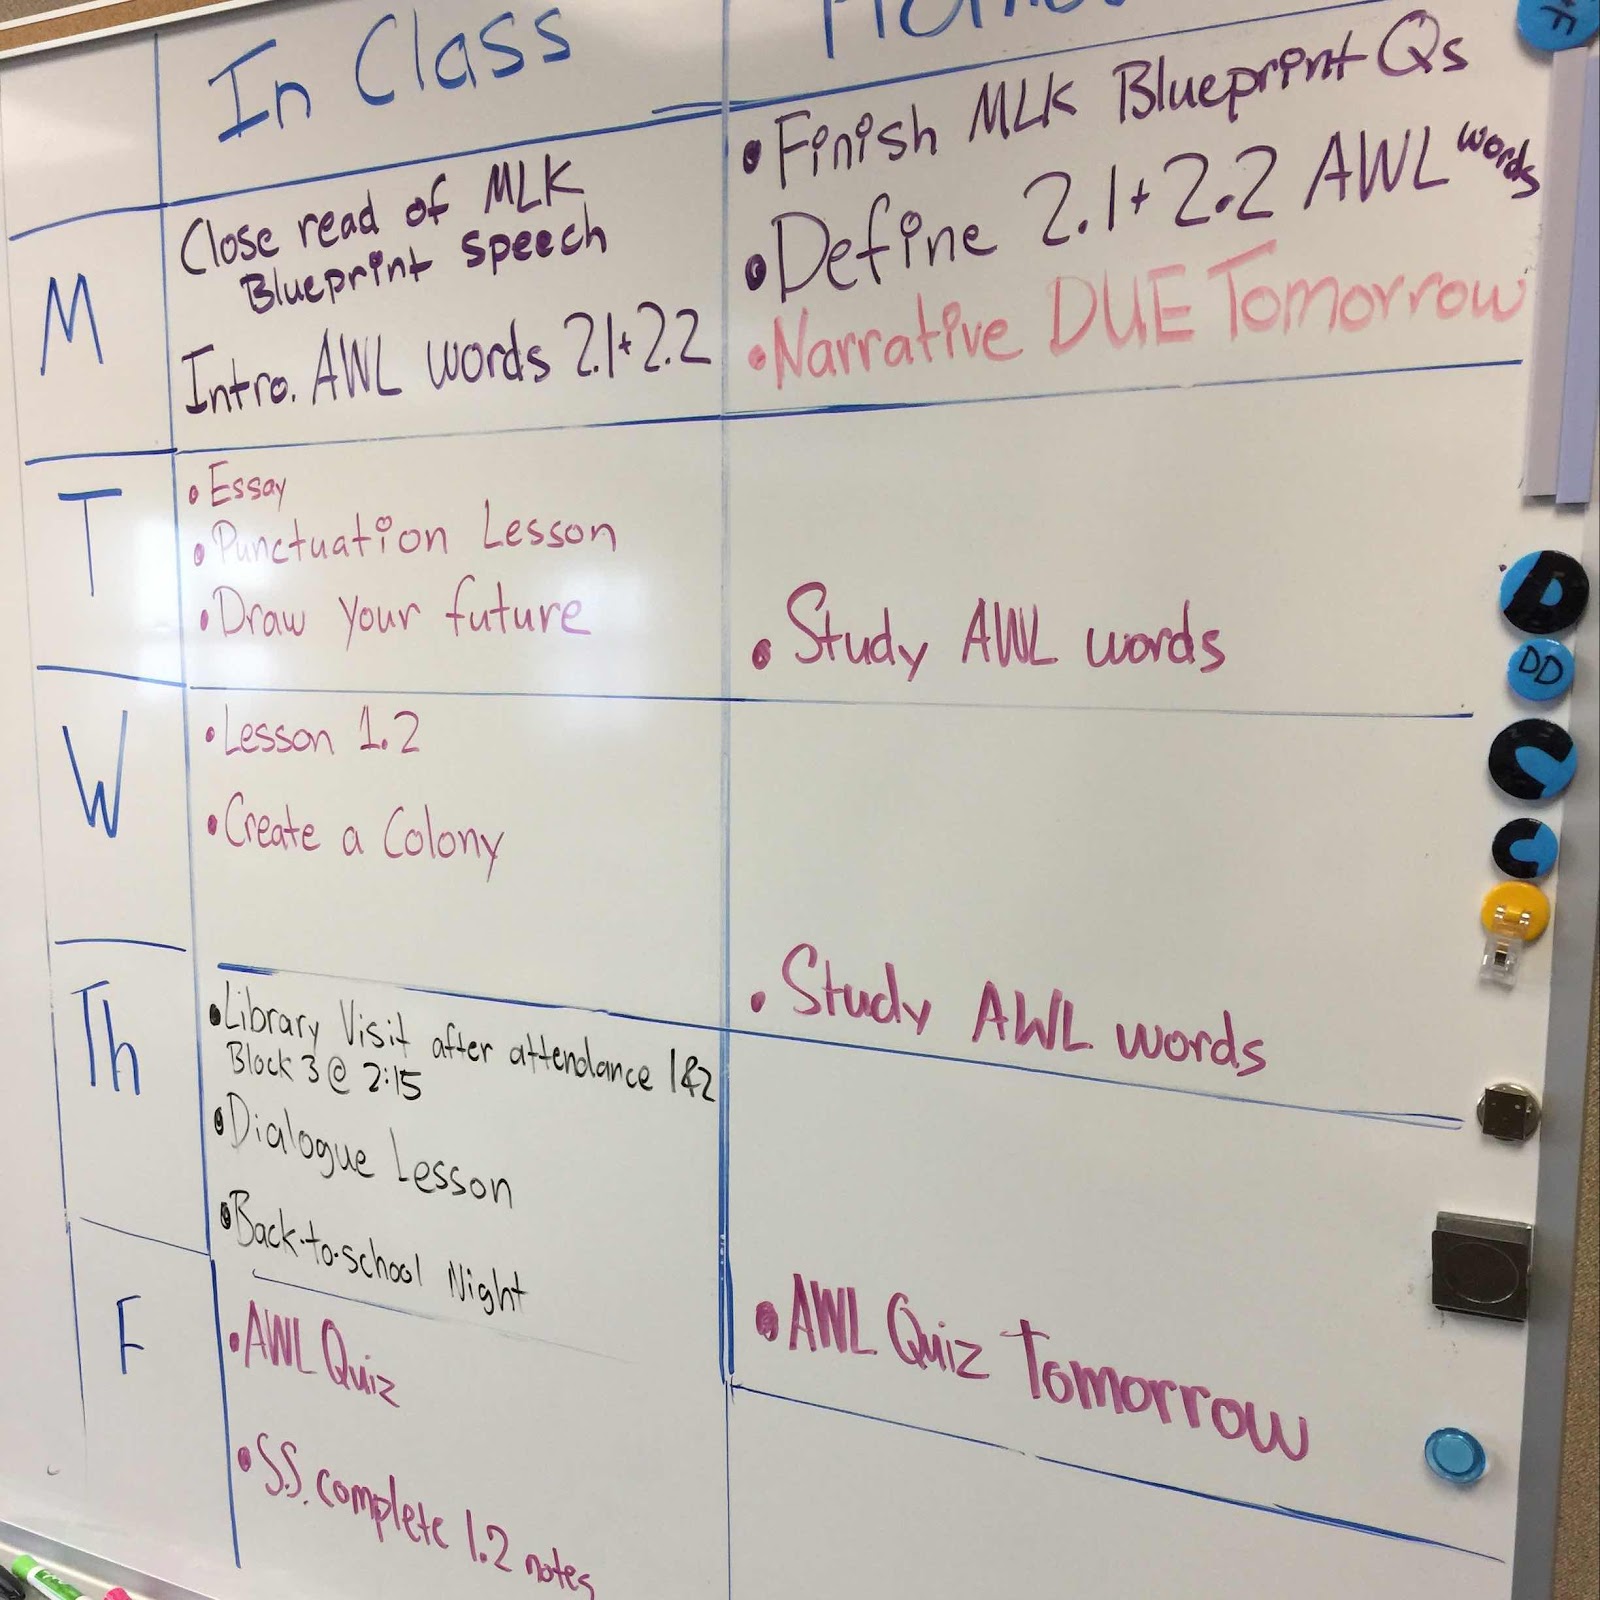 In Class
M
Close read of MLK
Blueprint speech
Intro. AWL words 2.1+2.2
• Finish MLK Blueprint Qs
• Define 2.1+2.2 AWL words
• Narrative DUE Tomorrow
T
• Essay
• Punctuation Lesson
• Draw your future
• Study AWL words
W
• Lesson 1.2
• Create a Colony
• Study AWL words
Th
• Library Visit after attendance 1&2
Block 3 @ 2:15
• Dialogue Lesson
• Back-to-school Night
• AWL Quiz Tomorrow
F
• AWL Quiz
• S.S. complete 1.2 notes
D
DD